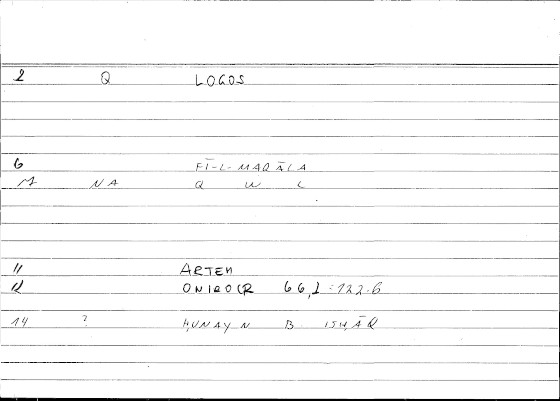 2 Q LOGOS
6 FĪ-L-MAQĀLA
M NA Q W L
11 ARTEM
12 ONIROCR 66,2 = 122.6
14 ? ḤUNAYN B. ISḤĀQ